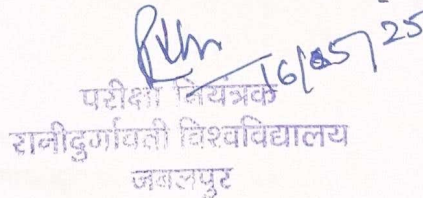 16/05/25
परीक्षा नियंत्रक
रानीदुर्गावती विश्वविद्यालय
जबलपुर